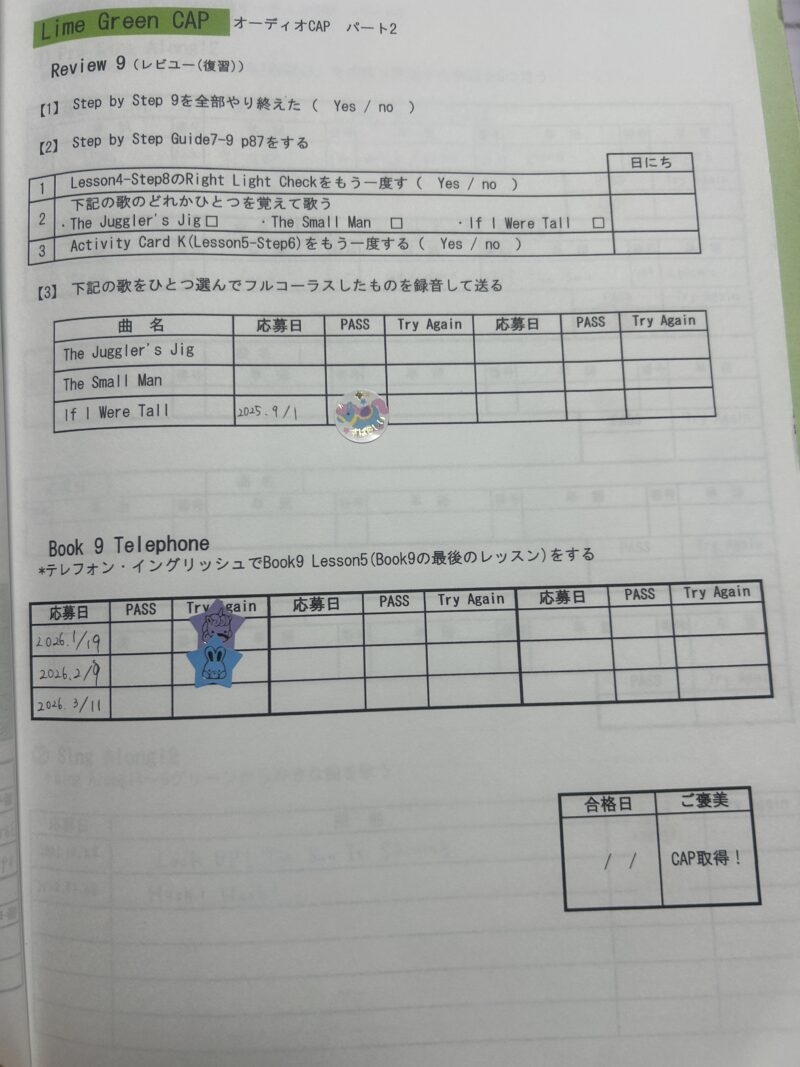 Lime Green CAP オーディオCAP パート2
Review 9 (レビュー(復習))
【1】 Step by Step 9を全部やり終えた ( Yes / no )
【2】 Step by Step Guide7-9 p87をする
日にち
1 Lesson4-Step8のRight Light Checkをもう一度す ( Yes / no )
2 下記の歌のどれかひとつを覚えて歌う
・The Juggler's Jig□ ・The Small Man □ ・If I Were Tall □
3 Activity Card K(Lesson5-Step6)をもう一度する ( Yes / no )
【3】 下記の歌をひとつ選んでフルコーラスしたものを録音して送る
曲 名 応募日 PASS Try Again 応募日 PASS Try Again
The Juggler's Jig
The Small Man
If I Were Tall 2025.9/1 すばらしい
Book 9 Telephone
*テレフォン・イングリッシュでBook9 Lesson5(Book9の最後のレッスン)をする
応募日 PASS Try Again 応募日 PASS Try Again 応募日 PASS Try Again
2026.1/19
2026.2/9
2026.3/11
合格日 ご褒美
/ / CAP取得！